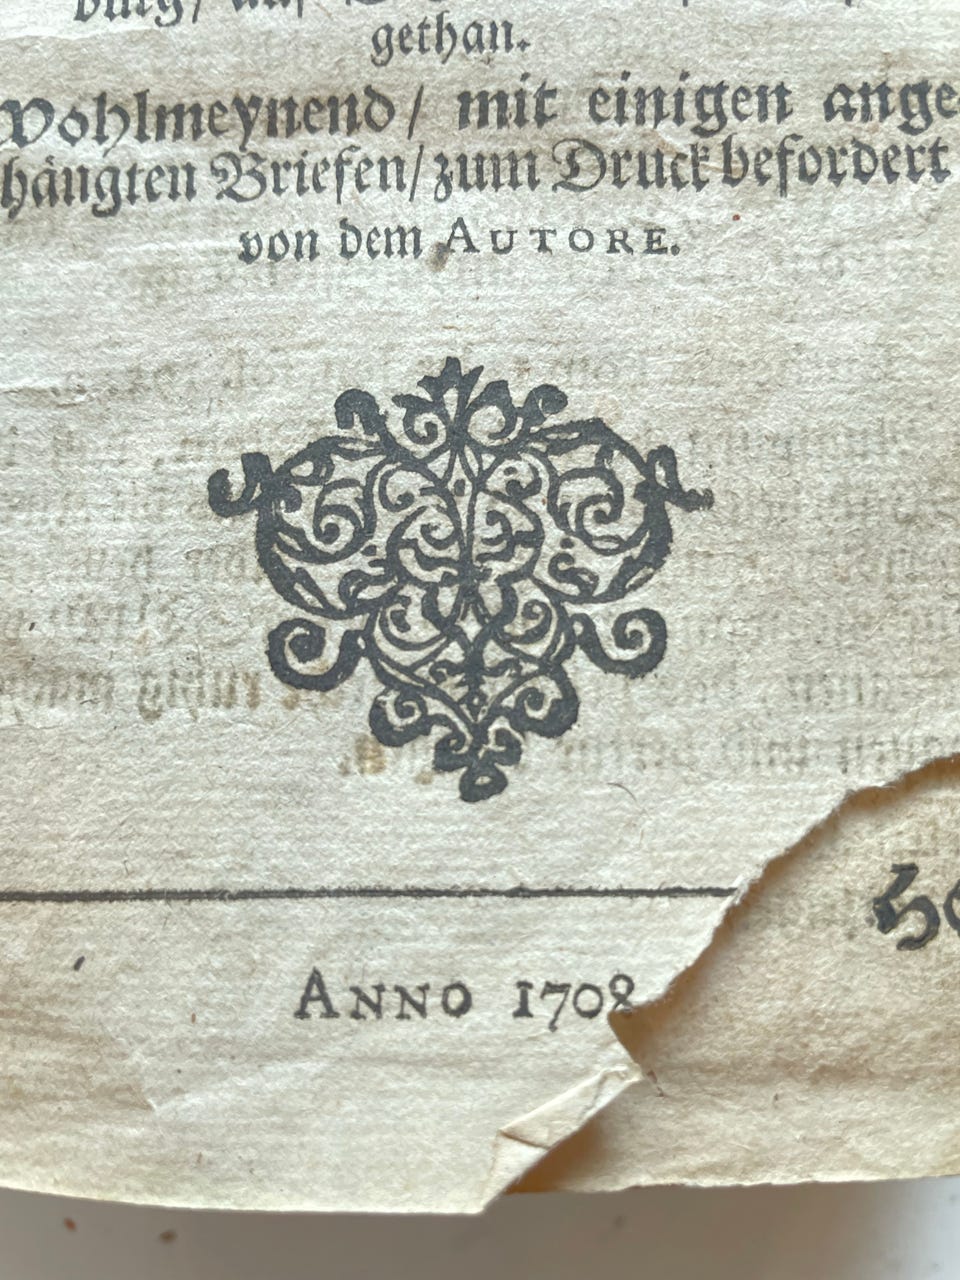 gethan.
Wohlmeynend/ mit einigen ange-
hängten Briefen/ zum Druck befordert
von dem AUTORE.
ANNO 1708